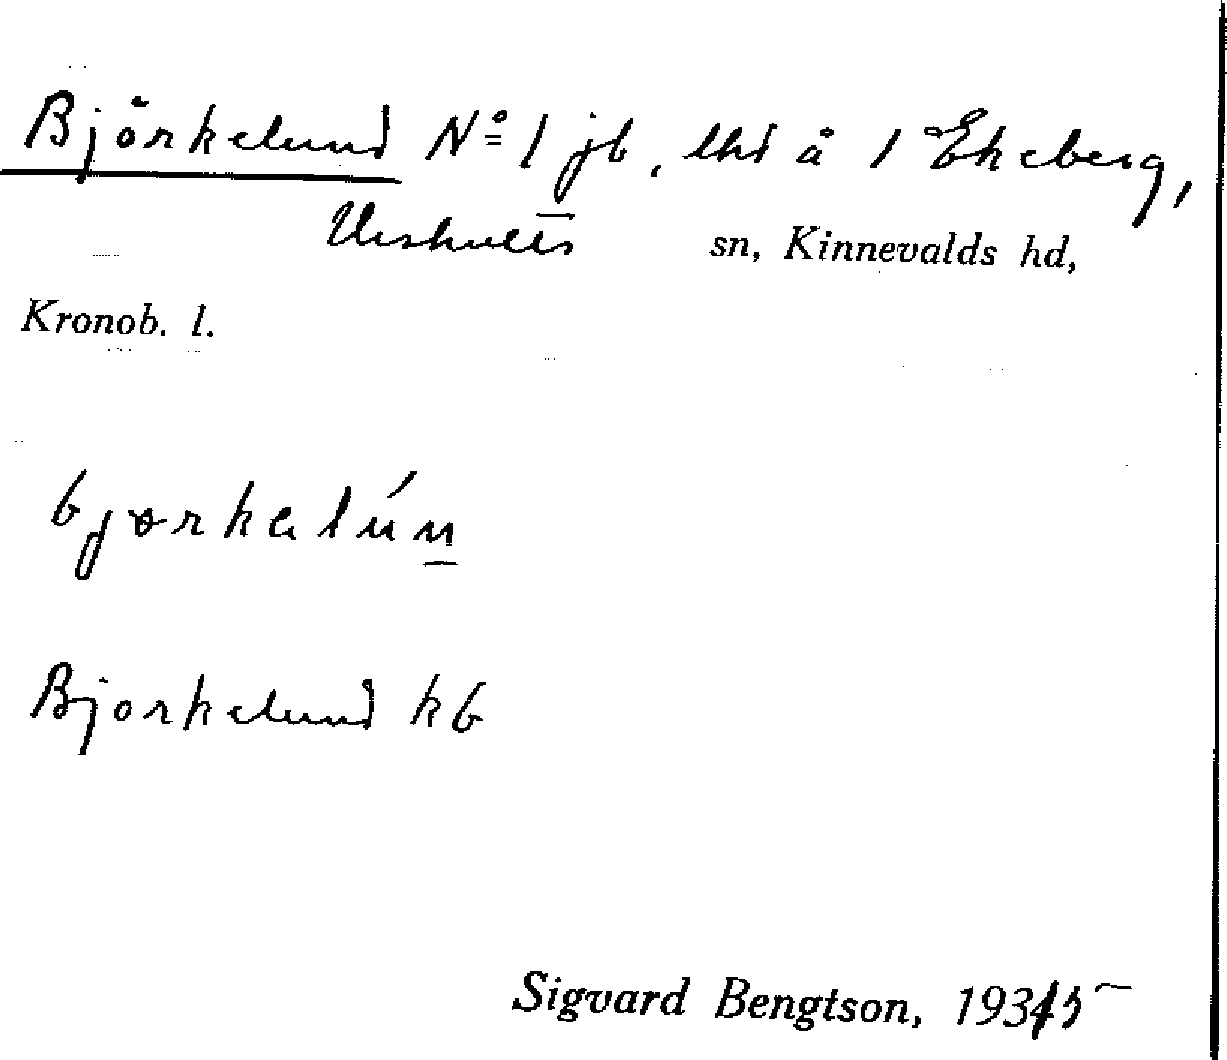 Björkelund No 1 jb, lht å 1 Ekeberg,
Urshults sn, Kinnevalds hd,
Kronob. l.
bjørkalún
Bjorkelund kb
Sigvard Bengtson, 1935